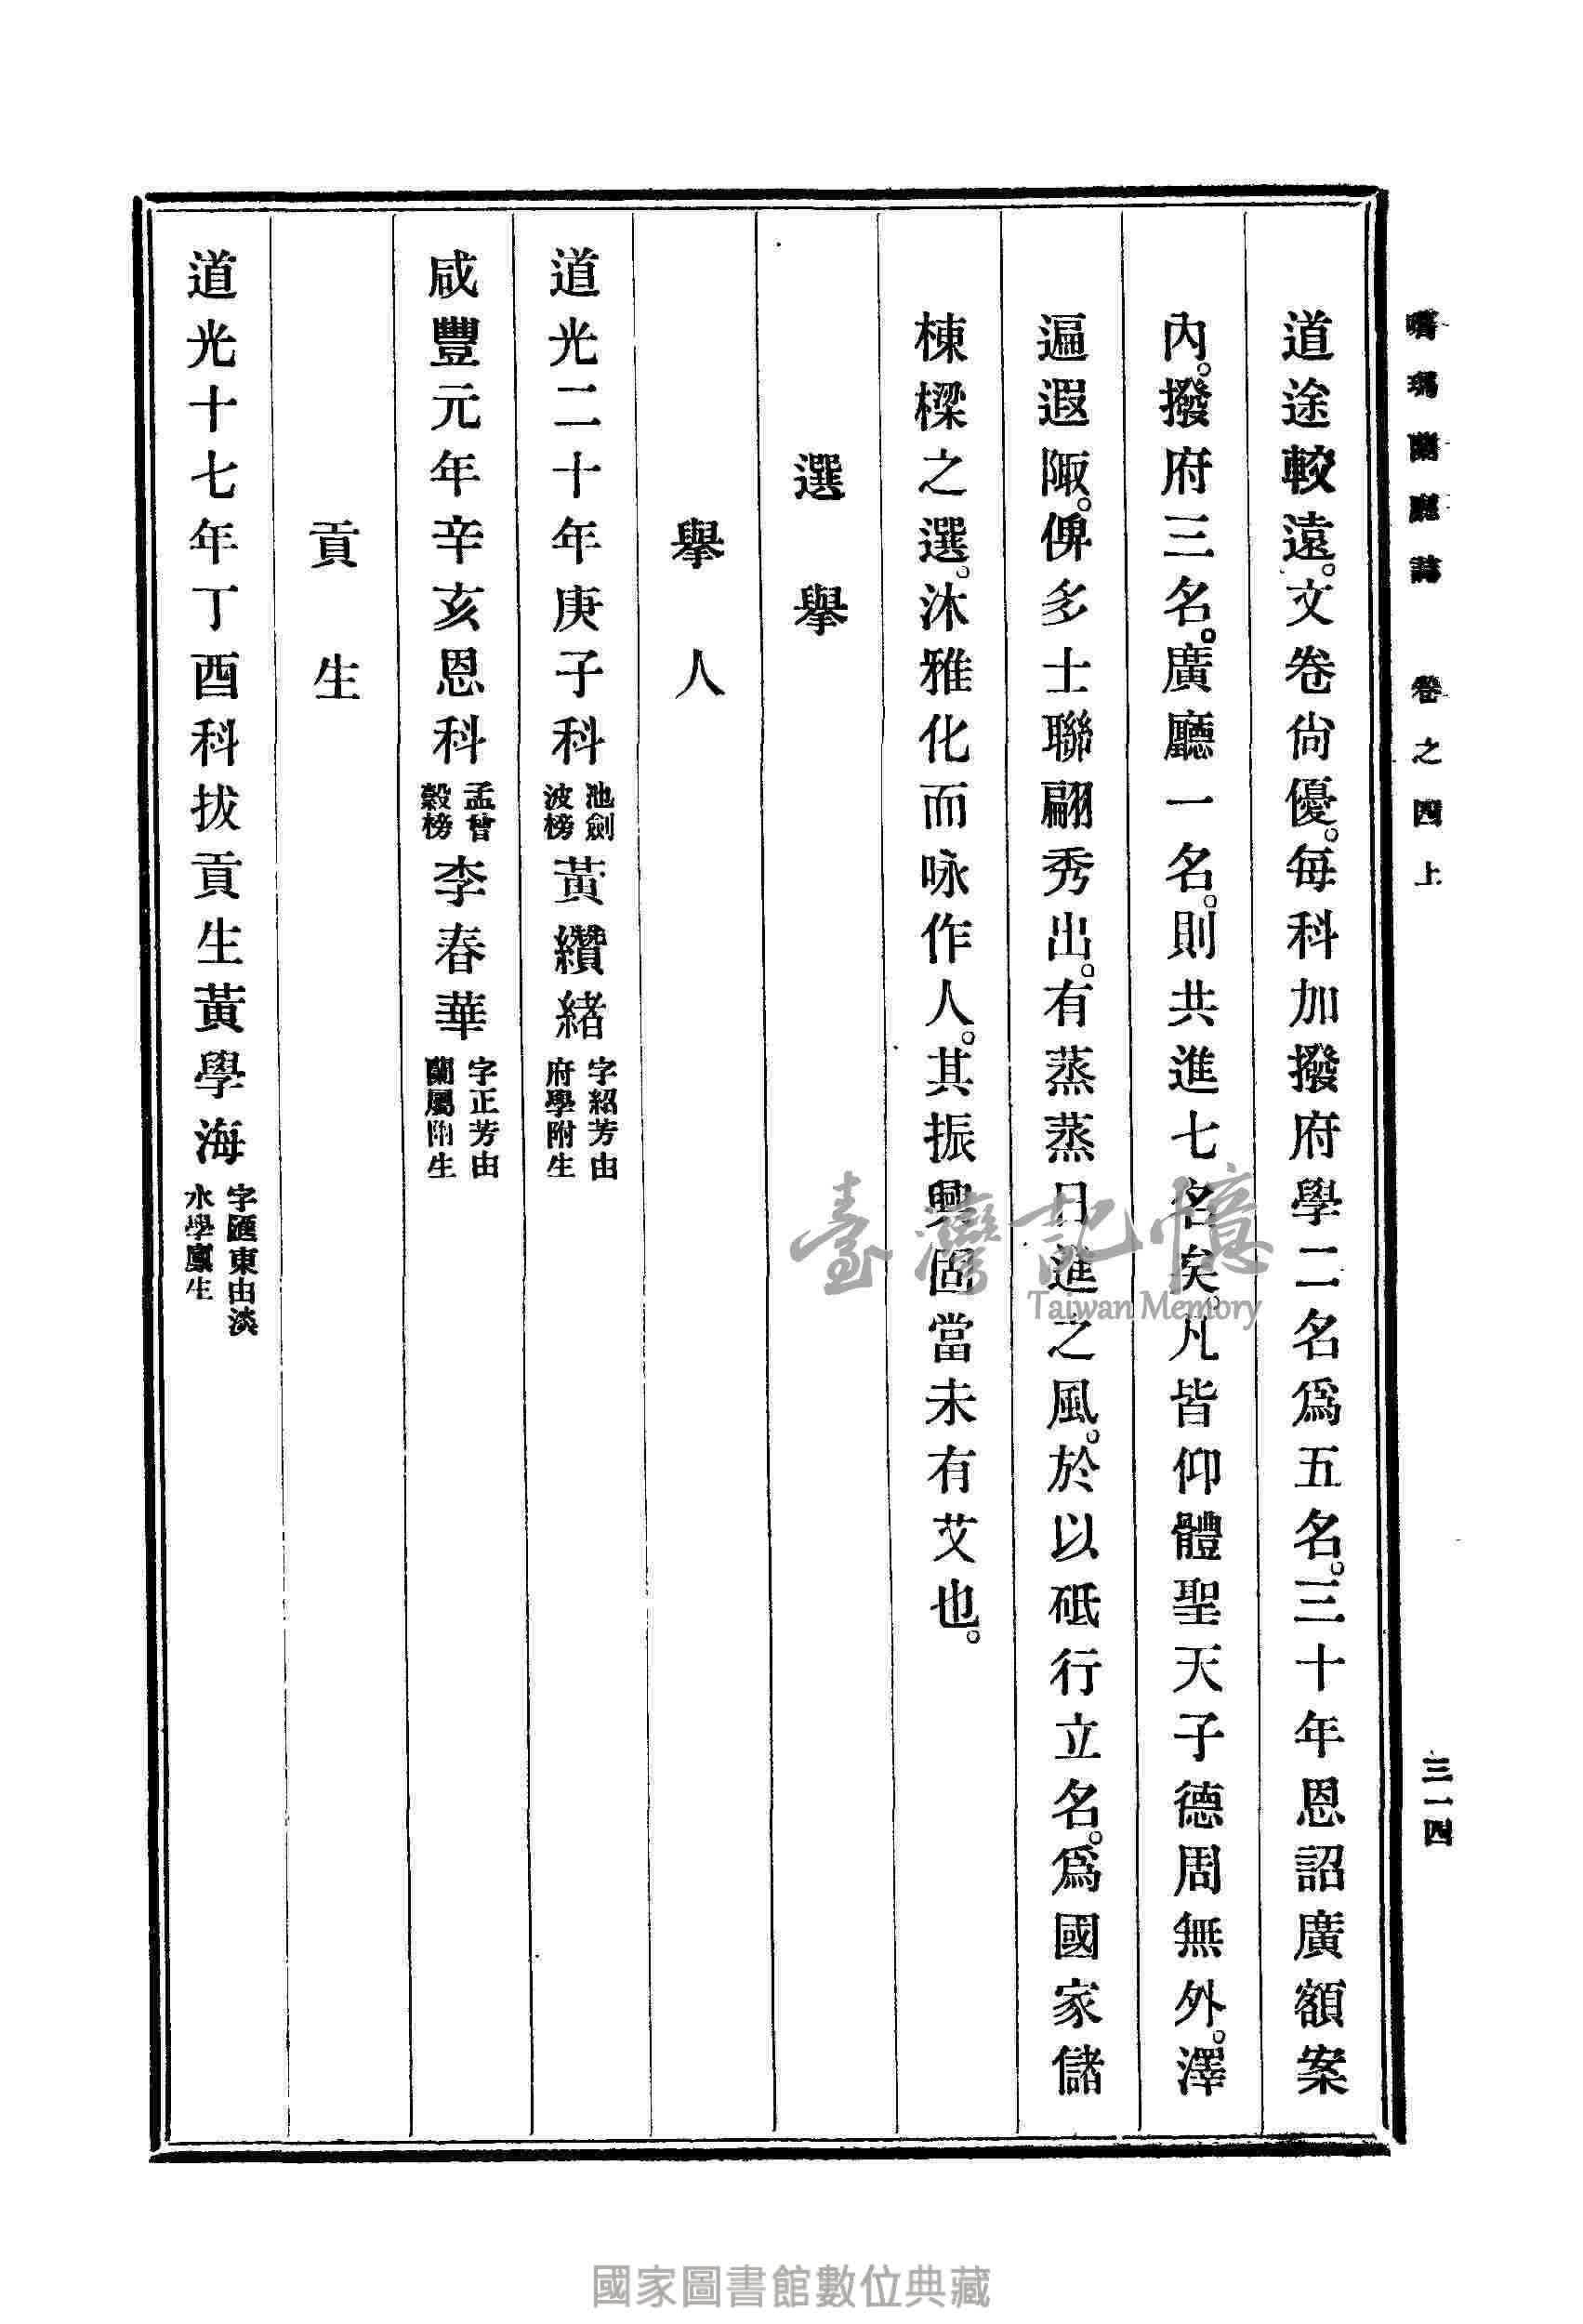 噶瑪蘭廳誌　卷之四上　三一四
道途較遠。文卷尙優。每科加撥府學二名爲五名。三十年恩詔廣額案
內。撥府三名。廣廳一名。則共進七名矣。凡皆仰體聖天子德周無外。澤
遍遐陬。俾多士聯翩秀出。有蒸蒸日進之風。於以砥行立名。爲國家儲
棟樑之選。沐雅化而咏作人。其振興固當未有艾也。
選舉
舉人
道光二十年庚子科池劍波榜黃纘緖字紹芳由府學附生
咸豐元年辛亥恩科孟曾穀榜李春華字正芳由蘭屬附生
貢生
道光十七年丁酉科拔貢生黃學海字匯東由淡水學廩生
臺灣記憶
Taiwan Memory
國家圖書館數位典藏